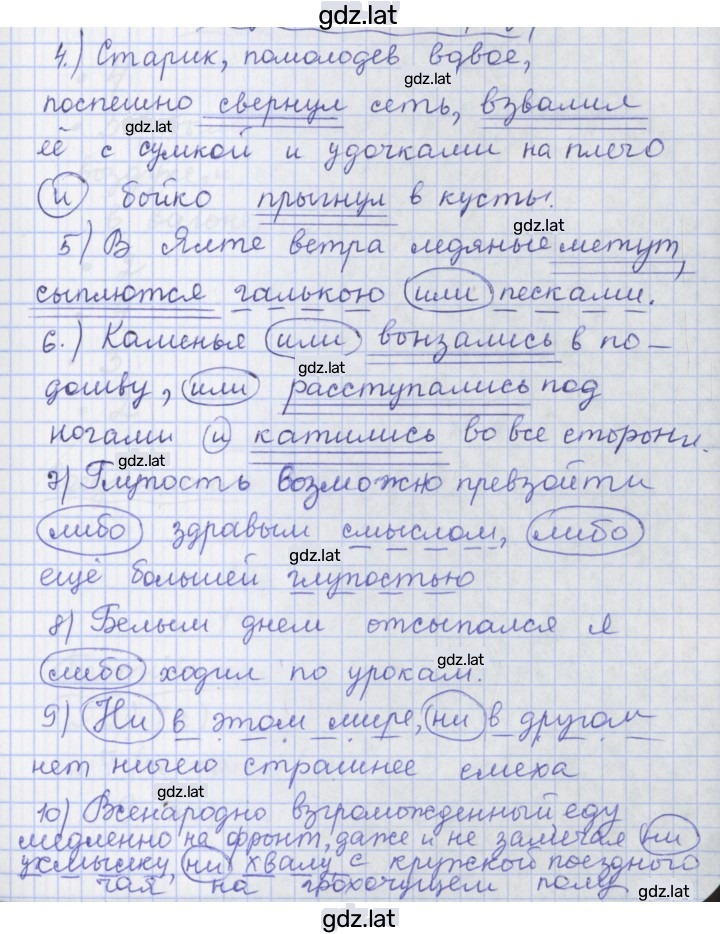 gdz.lat
4.) Старик, помолодев вдвое,
поспешно свернул сеть, взвалил
gdz.lat
её с сумкой и удочками на плечо
и бойко прыгнул в кусты.
gdz.lat
5) В Ялте ветра ледяные метут,
сыплются галькою или песками.
6.) Каменья или вонзались в по-
gdz.lat
дошву, или расступались под
ногами и катились во все стороны.
gdz.lat
7) Глупость возможно превзойти
либо здравым смыслом, либо
gdz.lat
ещё большей глупостью
8) Белым днем отсыпался я
gdz.lat
либо ходил по урокам.
9) Ни в этом мире, ни в другом
нет ничего страшнее смеха
gdz.lat
10) Всенародно взгроможденный еду
медленно на фронт, даже и не замечая ни
ухмышку, ни хвалу с кружкой поездного
чая на грохочущем полу
gdz.lat
gdz.lat